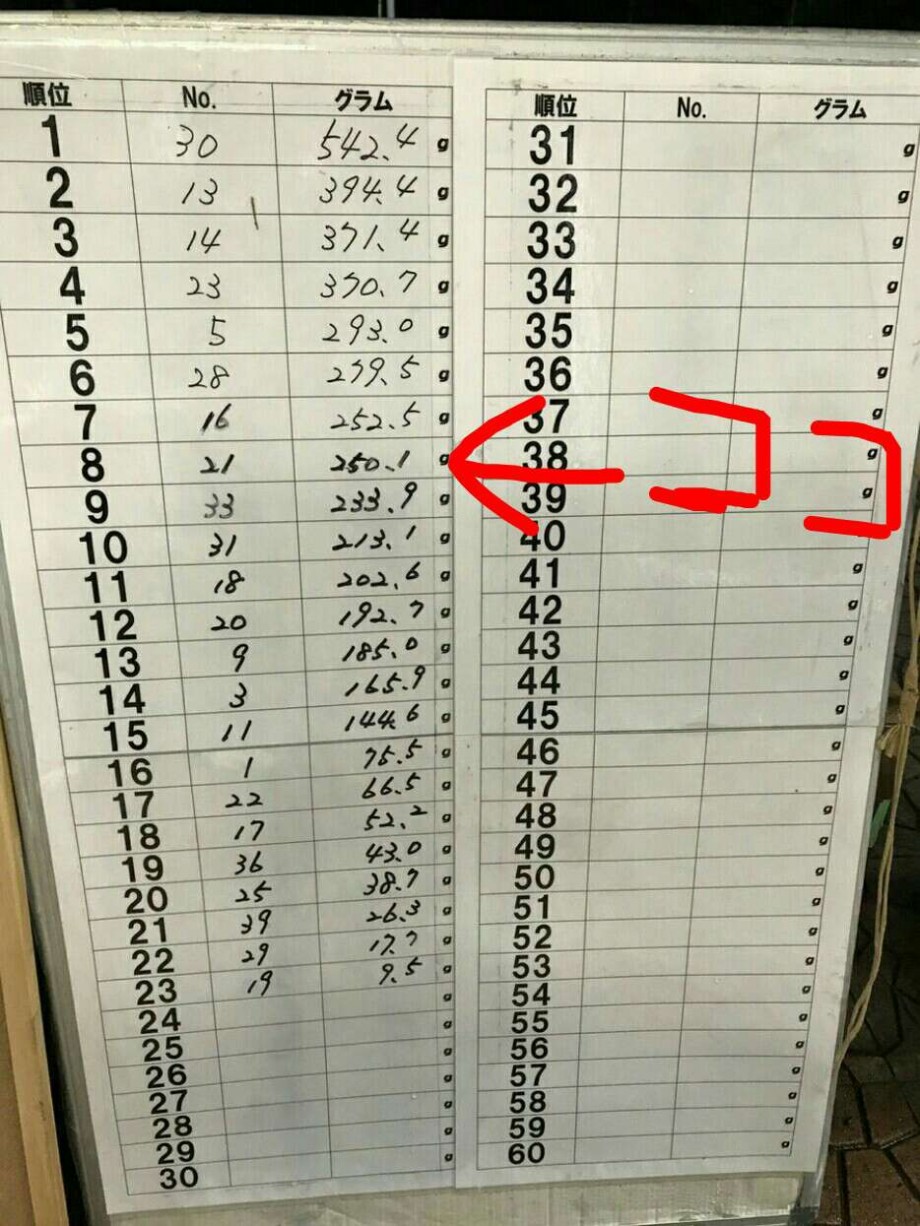 順位 No. グラム
1 30 542.4 g
2 13 394.4 g
3 14 371.4 g
4 23 370.7 g
5 5 293.0 g
6 28 279.5 g
7 16 252.5 g
8 21 250.1 g
9 33 233.9 g
10 31 213.1 g
11 18 202.6 g
12 20 192.7 g
13 9 185.0 g
14 3 165.9 g
15 11 144.6 g
16 1 75.5 g
17 22 66.5 g
18 17 52.2 g
19 36 43.0 g
20 25 38.7 g
21 39 26.3 g
22 29 17.7 g
23 19 9.5 g
24 g
25 g
26 g
27 g
28 g
29 g
30
順位 No. グラム
31 g
32 g
33 g
34 g
35 g
36 g
37 g
38 g
39 g
40
41 g
42 g
43 g
44 g
45 g
46 g
47 g
48 g
49 g
50 g
51 g
52 g
53 g
54 g
55 g
56 g
57 g
58 g
59 g
60 g
←ココ